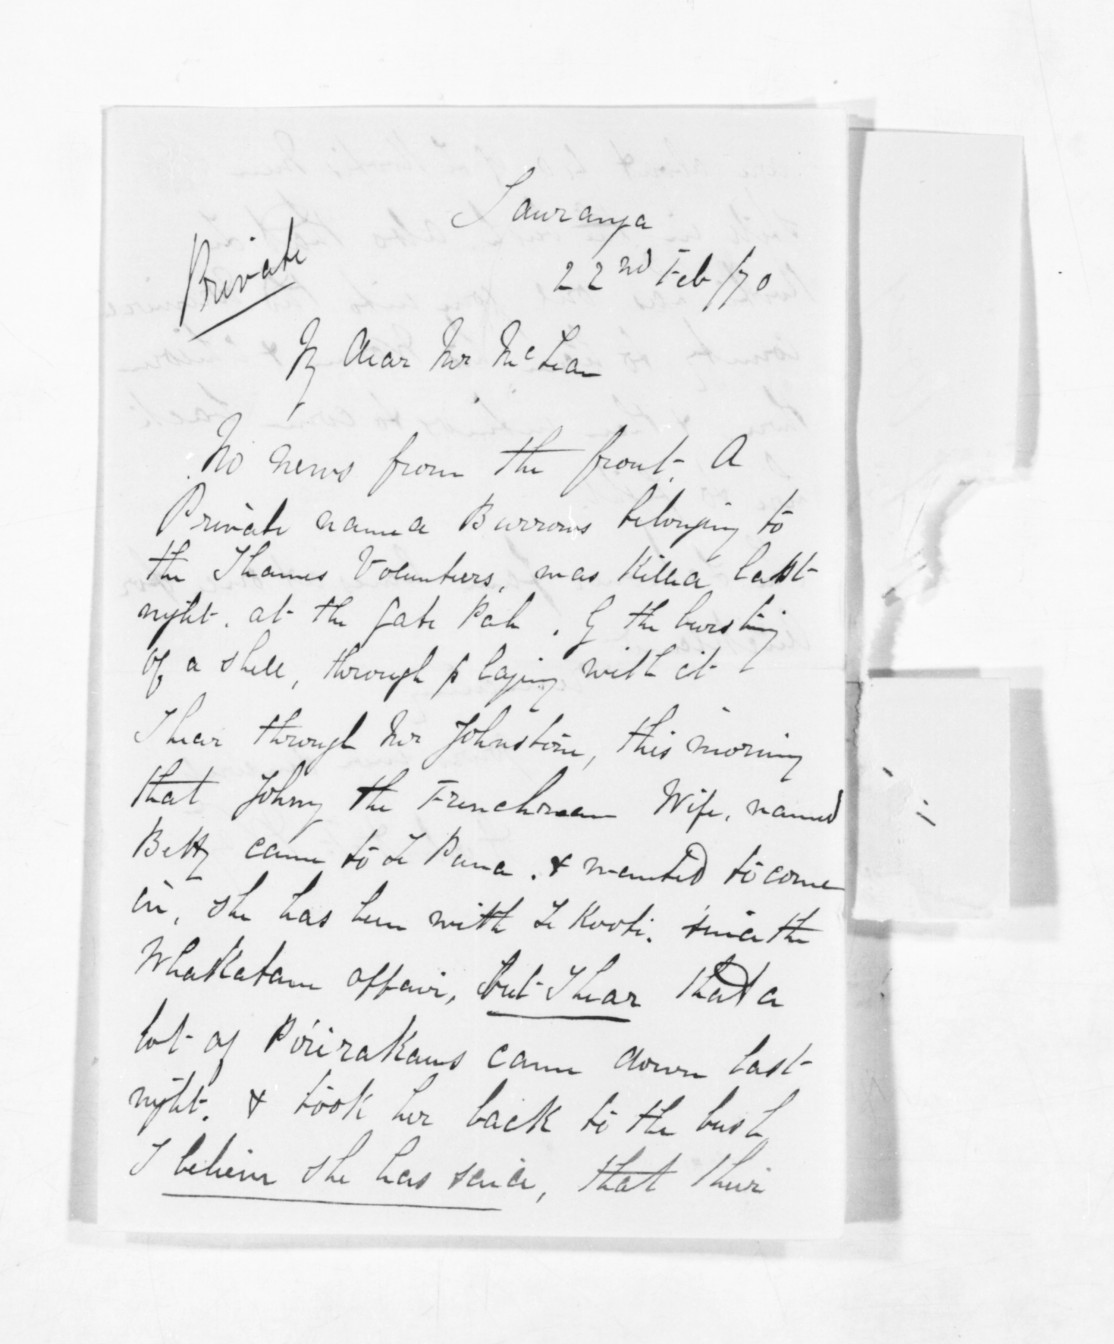 Tauranga
Private
22nd Feb/70
My dear Mr McLean
No news from the front. A
Private named Burrows belonging to
the Thames Volunteers, was killed last
night. at the Gate Pah. By the bursting
of a shell, through playing with it
I hear through Mr Johnstone, this morning
that Johny the Frenchman Wife, named
Betty came to Te Puna. & wanted to come
in, she has been with Te Kooti. since the
Whakatane affair, but I hear that a
lot of Pirirakaus came down last
night. & took her back to the bush
I believe she has said, that their